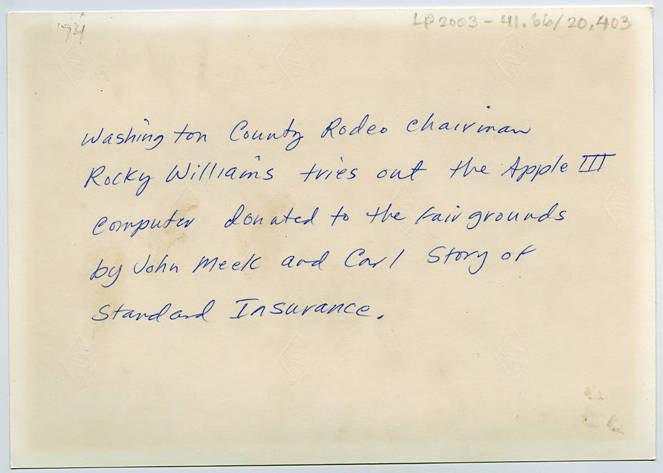 LP2003-41.66/20,403
Washington County Rodeo Chairman
Rocky Williams tries out the Apple III
Computer donated to the Fairgrounds
by John Meek and Carl Story of
Standard Insurance.